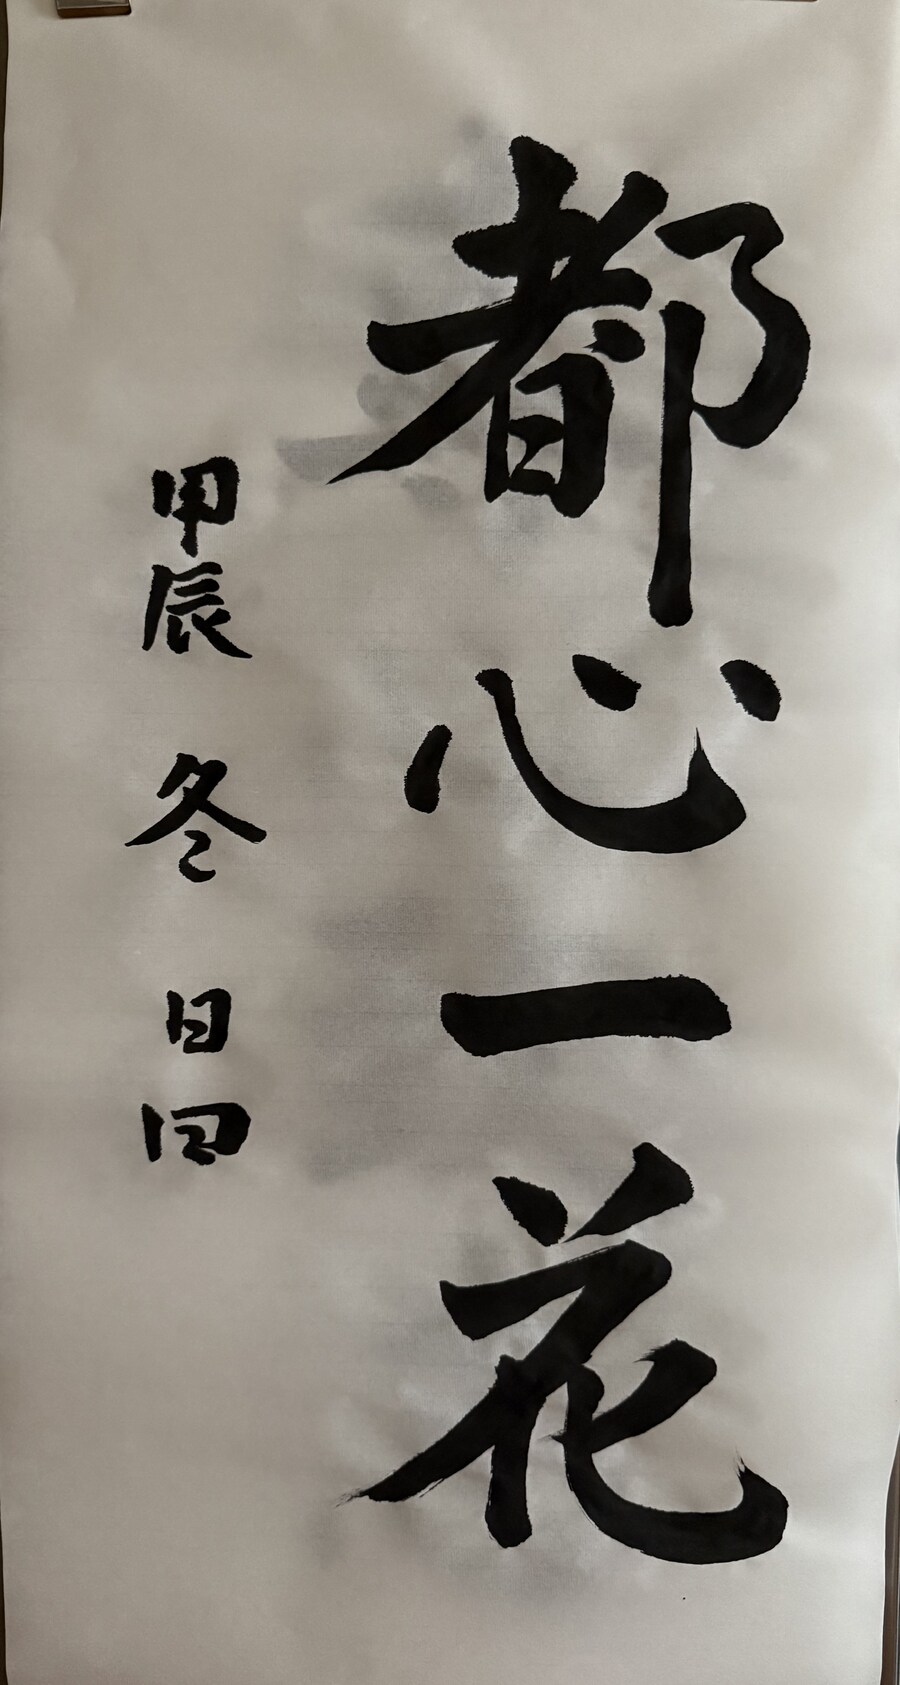 都心一花
甲辰 冬 日曰